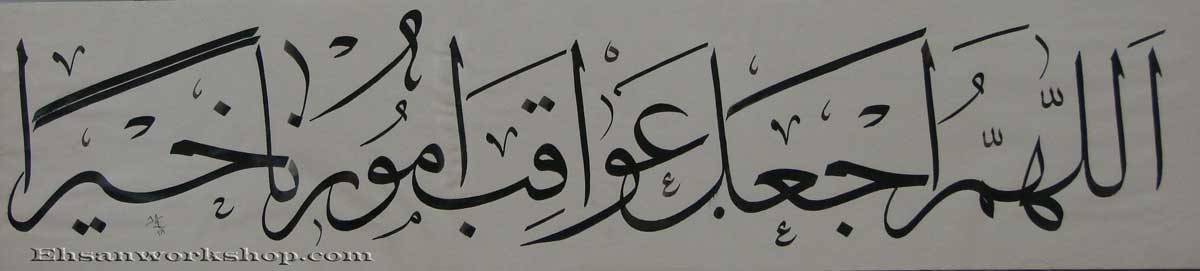 اَللّٰهُمَّ اجْعَل عَوْاقِبَ اُمُورِنا خَیراً
Ehsanworkshop.com